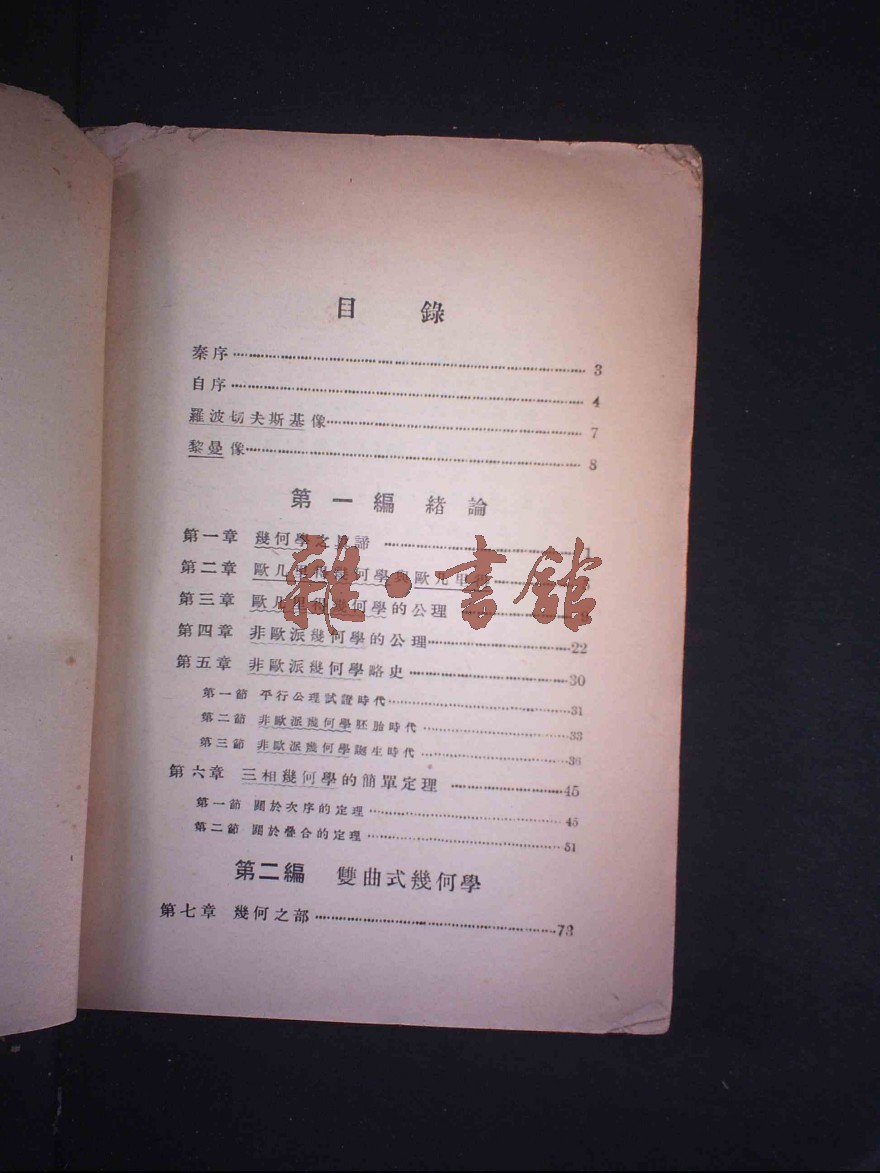 目 錄
秦序 3
自序 4
羅波切夫斯基像 7
黎曼像 8
第一編 緒論
第一章 幾何學之 諦 1
第二章 歐几里得幾何學與歐几里
第三章 歐几里得幾何學的公理
第四章 非歐派幾何學的公理 22
第五章 非歐派幾何學略史 30
第一節 平行公理試證時代 31
第二節 非歐派幾何學胚胎時代 33
第三節 非歐派幾何學誕生時代
第六章 三相幾何學的簡單定理 45
第一節 關於次序的定理 45
第二節 關於疊合的定理 51
第二編 雙曲式幾何學
第七章 幾何之部 73
雜·書館